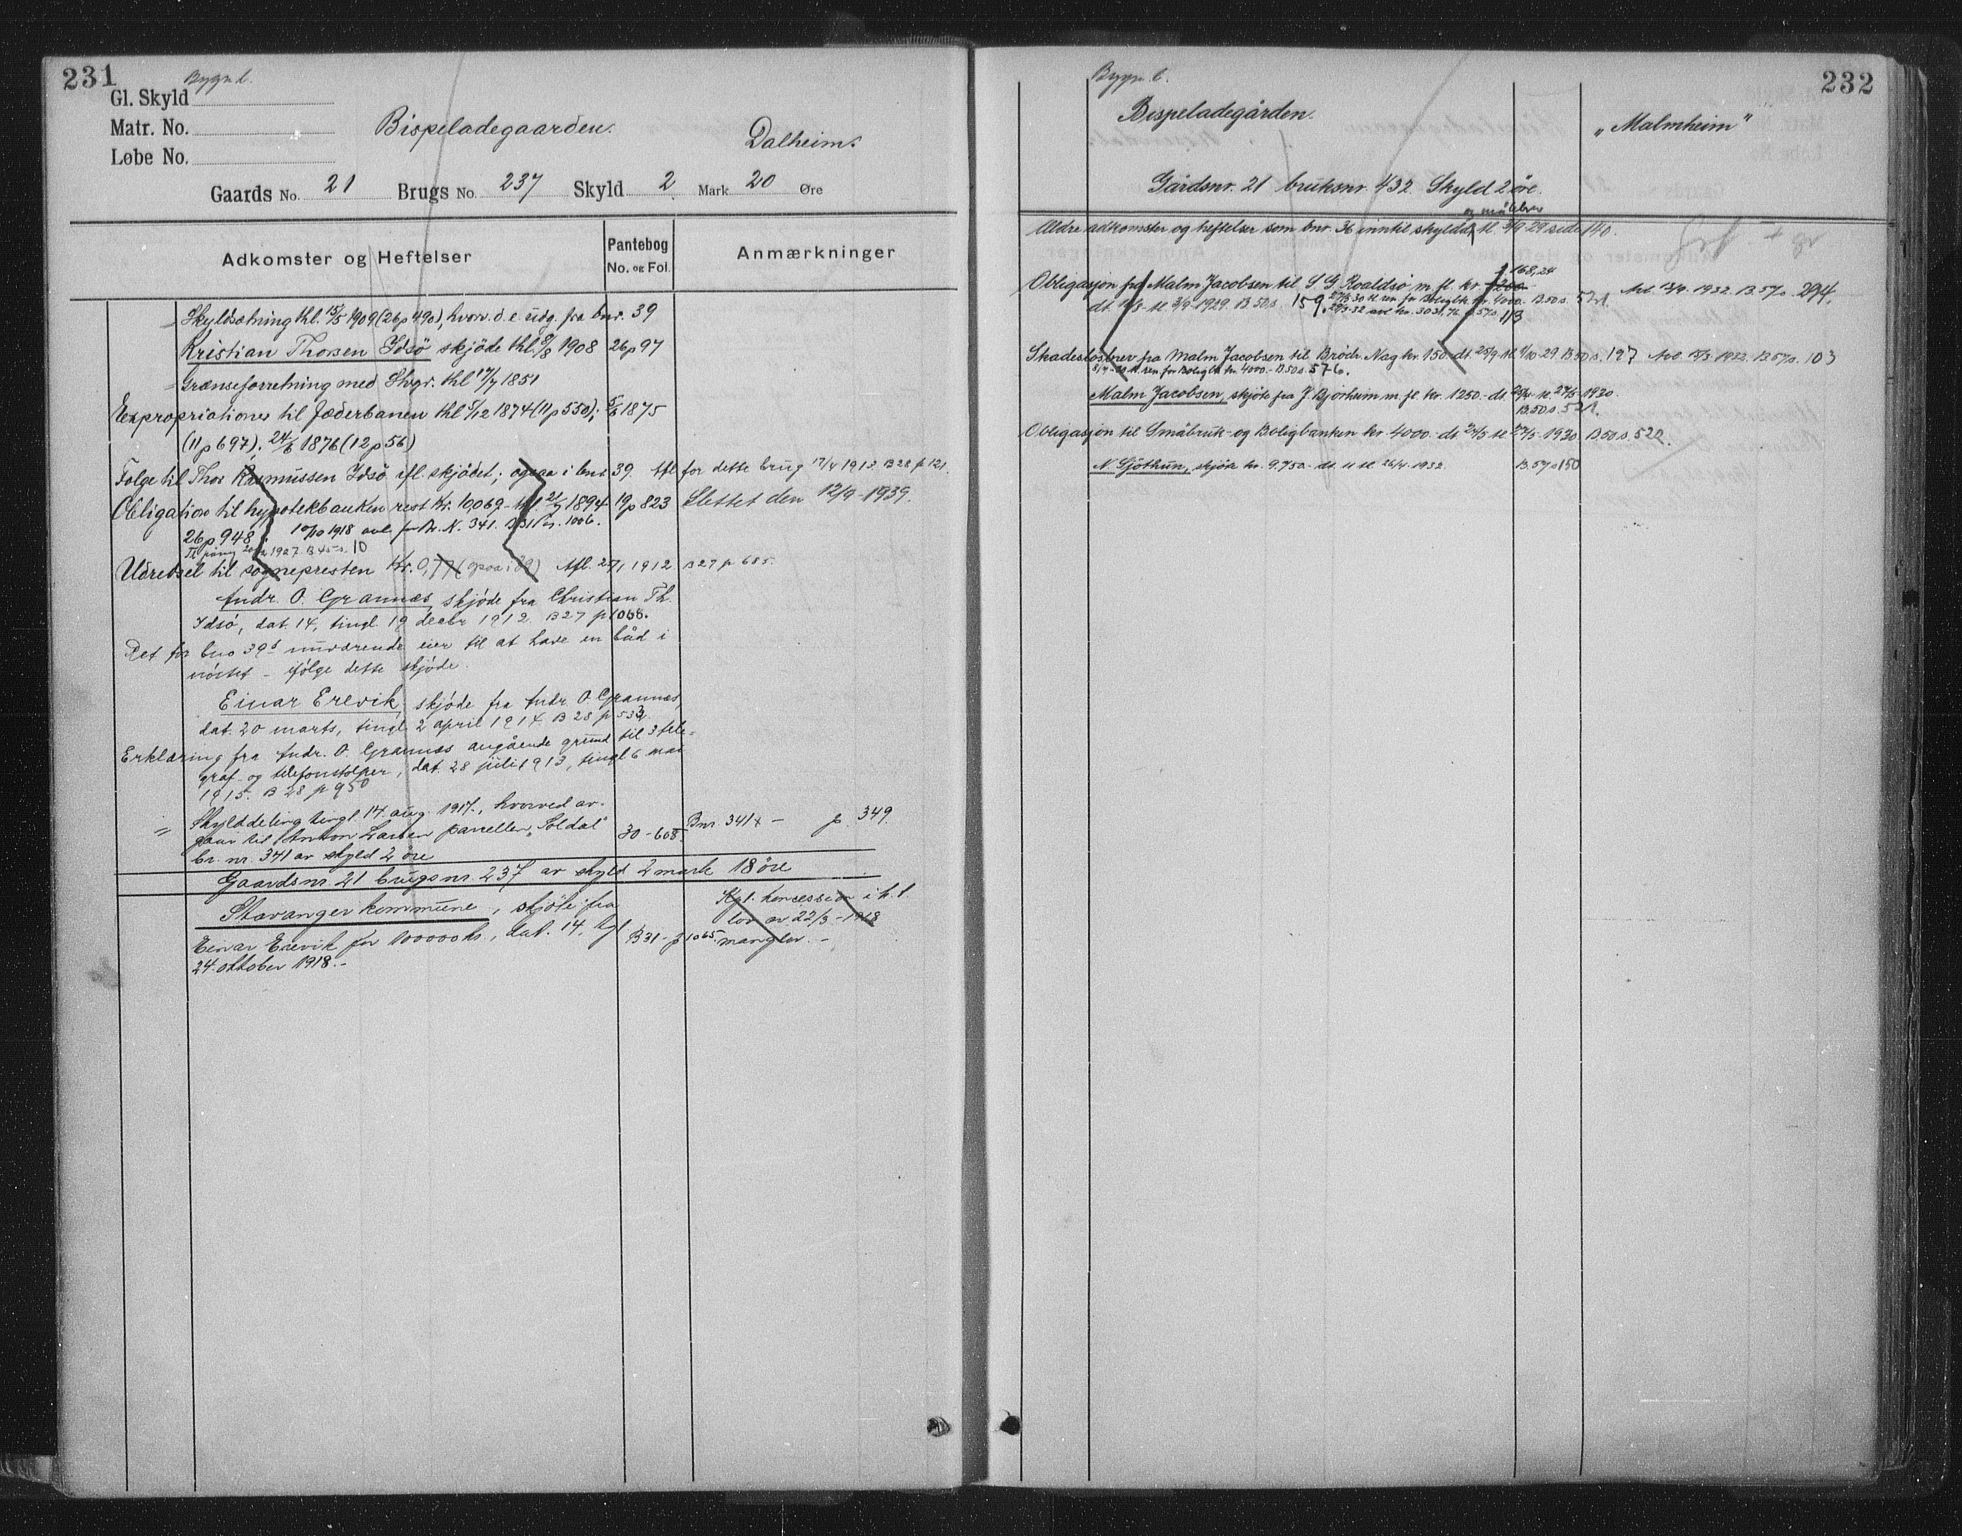 231
Bygn. l.
Gl. Skyld
Matr. No.
Løbe No.
Bispeladegaarden.
Dalheim.
Gaards No. 21 Brugs No. 237 Skyld 2 Mark 20 Øre
Adkomster og Heftelser
Pantebog
No. og Fol.
Anmærkninger
Skyldsætning thl. 15/5 1909 (26 p 490), hvorv. d. e. udg. fra bnr. 39
Kristian Thorsen Idsö skjöde thl 8/8 1908 26 p 97
Grænseforretning med Stvgr. thl 17/7 1851
Expropriationer til Jæderbanen thl 5/12 1874 (11 p 550); 5/6 1875
(11 p 697); 24/6 1876 (12 p 56)
Følge til Thor Rasmussen Idsö efl. skjödet; ogsaa i bnr 39. Afl for dette brug 17/4 1913 B 28 p 121
Obligation til hypotekbanken rest Kr. 10,069 thl. 21/7 1894 19 p 823 Slettet den 12/9-1939.
26 p 948; 10/10 1918 avl for Br. N. 341. B 31 p. 1006.
1927. B 45 s. 10
Udredsel til sognepresten Kr. 0,77 (ogsaa i 39) Afl. 27/1 1912 B 27 p 685.
Andr. O. Grannes, skjøde fra Christian Th.
Idsø, dat. 14, tingl 19 decbr 1912. B 27 p 1068.
Ret for bno 39s nuværende eier til at have en båd i
nöstet - ifölge dette skjöde.
Einar Erevik, skjøde fra Andr. O. Grannes,
dat. 20 marts, tingl 2 april 1914. B 28 p 533
Erklæring fra Andr. O. Grannes angående grund til 3 tele-
graf- og telefonstolper, dat. 28 juli 1913, tingl 6 mai
1915. B 28 p 950
Skylddeling tingl. 14. aug. 1917., hvorved av-
gaar til Anton Larsen parcellen „Soldal" 30-608 Bnr. 341 - p. 349.
br. nr. 341 av skyld 2 øre
Gaardsnr. 21 brugsnr. 237 av skyld 2 mark 18 øre
Stavanger kommune, skjöte fra Kgl. koncession i h. t.
lov av 22/3-1918
Einar Erevik for 100000 kr., dat. 14, tgl B 31-p 1065. mangler. -
24. oktober 1918.-
232
Bygn. l.
Bispeladegården.
„Malmheim"
Gårdsnr. 21 bruksnr. 432 Skyld 2 øre.
og målebrev
Ældre adkomster og heftelser som bnr. 36 inntil skyldd. tl. 3/9-29 side 140.
168,24
Obligasjon fra Malm Jacobsen til S G Roaldsø m. fl. kr. 1200.- Avl. 13/9. 1932. B. 57 s. 294.
dt. /8 tl 3/9-1929. B. 50 s. 159. 27/5-30 tl. vea for Boligbk kr. 4000. B. 50 s. 521.
29/3-32 avl kr. 3031,76 B. 57 s. 113
Skadesløsbrev fra Malm Jacobsen til Brødr. Nag kr. 150. dt. 25/9 tl. 1/10-29 B. 50 s. 197 Avl 17/3. 1932. B. 57 s. 103
tl. vea for Boligbk kr. 4000.- B. 50 s. 576.
Malm Jacobsen, skjøte fra J. Bjorheim m. fl. kr. 1250.- dt. tl. 27/5-1930.
B. 50 s. 521.
Obligasjon til Småbruk- og Boligbanken kr. 4000.- dt 24/5 tl 27/5-1930. B. 50 s. 522.
N. Gjøthun, skjøte kr. 9.750.- dt. tl 26/4. 1932. B. 57 s 150